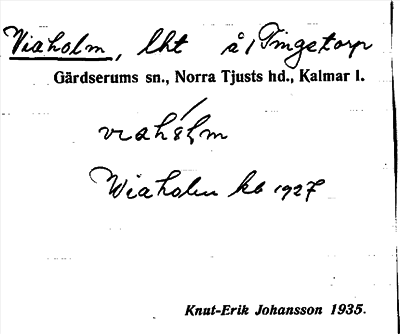 Viaholm, lht å 1 Tingstorp
Gärdserums sn., Norra Tjusts hd., Kalmar l.
viahólm
Wiaholm kb 1927
Knut-Erik Johansson 1935.